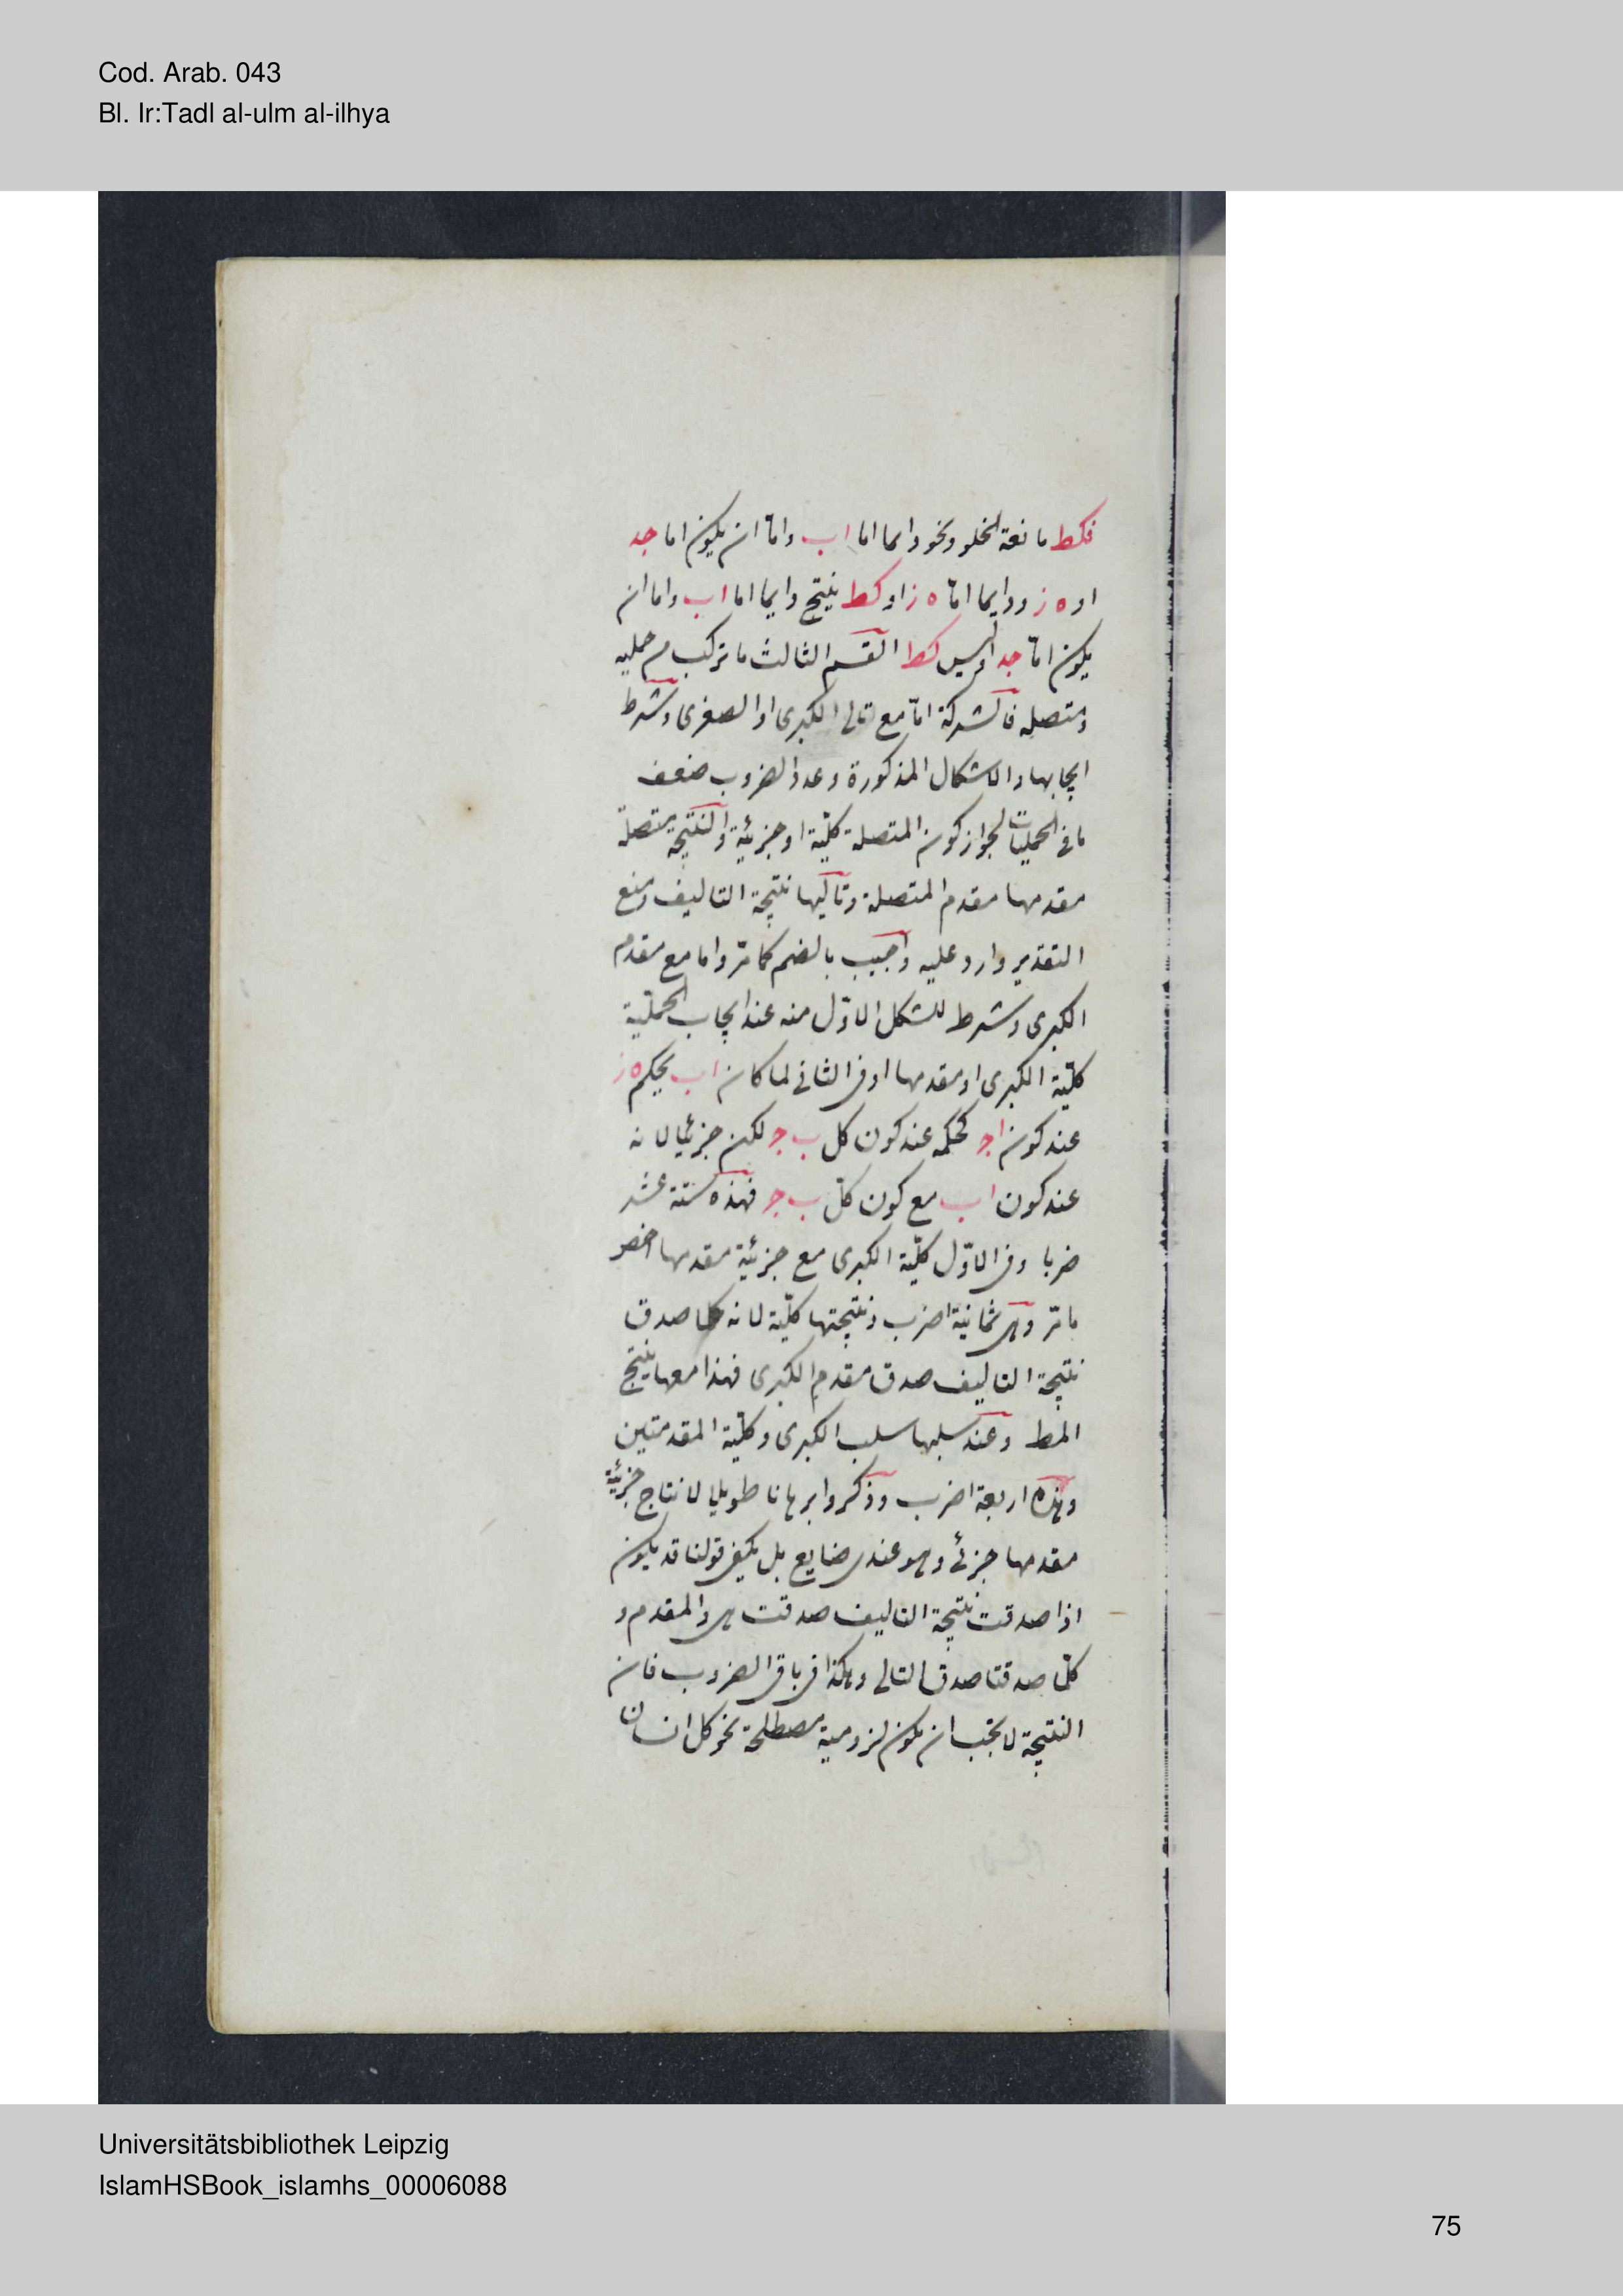 Cod. Arab. 043
Bl. Ir:Tadl al-ulm al-ilhya
فكط مانعة الخلو ونحو دايما اما اب واما ان يكون اما جد
او ه ز ودايما اما ه ز او كط ينتج دايما اما اب واما ان
يكون اما جد او ليس كط القسم الثالث ما تركب من حمليه
ومتصله فالشركة اما مع تالى الكبرى او الصغرى وشرط
ايجابها والاشكال المذكورة وعدد الضروب ضعف
ما فى الحمليات لجواز كون المتصلة كلية او جزئية والنتيجة متصلة
مقدمها مقدم المتصلة وتاليها نتيجة التاليف ومنع
التقدير وارد عليه واجيب بالضم كما مر واما مع مقدم
الكبرى وشرط للشكل الاول منه عند ايجاب الحملية
كلية الكبرى او مقدمها او فى الثانى لما كان اب يحكم ه ز
عند كون اج كحكمه عند كون كل ب ج لكن جزئيا لانه
عند كون اب مع كون كل ب ج فهذه ستة عشر
ضربا وفى الاول كلية الكبرى مع جزئية مقدمها اخصر
ما مر وهى ثمانية اضرب ونتيجتها كلية لانه كلما صدق
نتيجة التاليف صدق مقدم الكبرى فهذا معها ينتج
المط وعند سلبها سلب الكبرى وكلية المقدمتين
وهذه اربعة اضرب وذكروا برهانا طويلا لانتاج جزئية
مقدمها جزئى وهو عندى ضايع بل يكفى قولنا قد يكون
اذا صدقت نتيجة التاليف صدقت هى والمقدم و
كلما صدقتا صدق التالى وهكذا فى باقى الضروب فان
النتيجة لا يجب ان يكون لزومية مصطلحة نحو كل انسان
Universitätsbibliothek Leipzig
IslamHSBook_islamhs_00006088
75